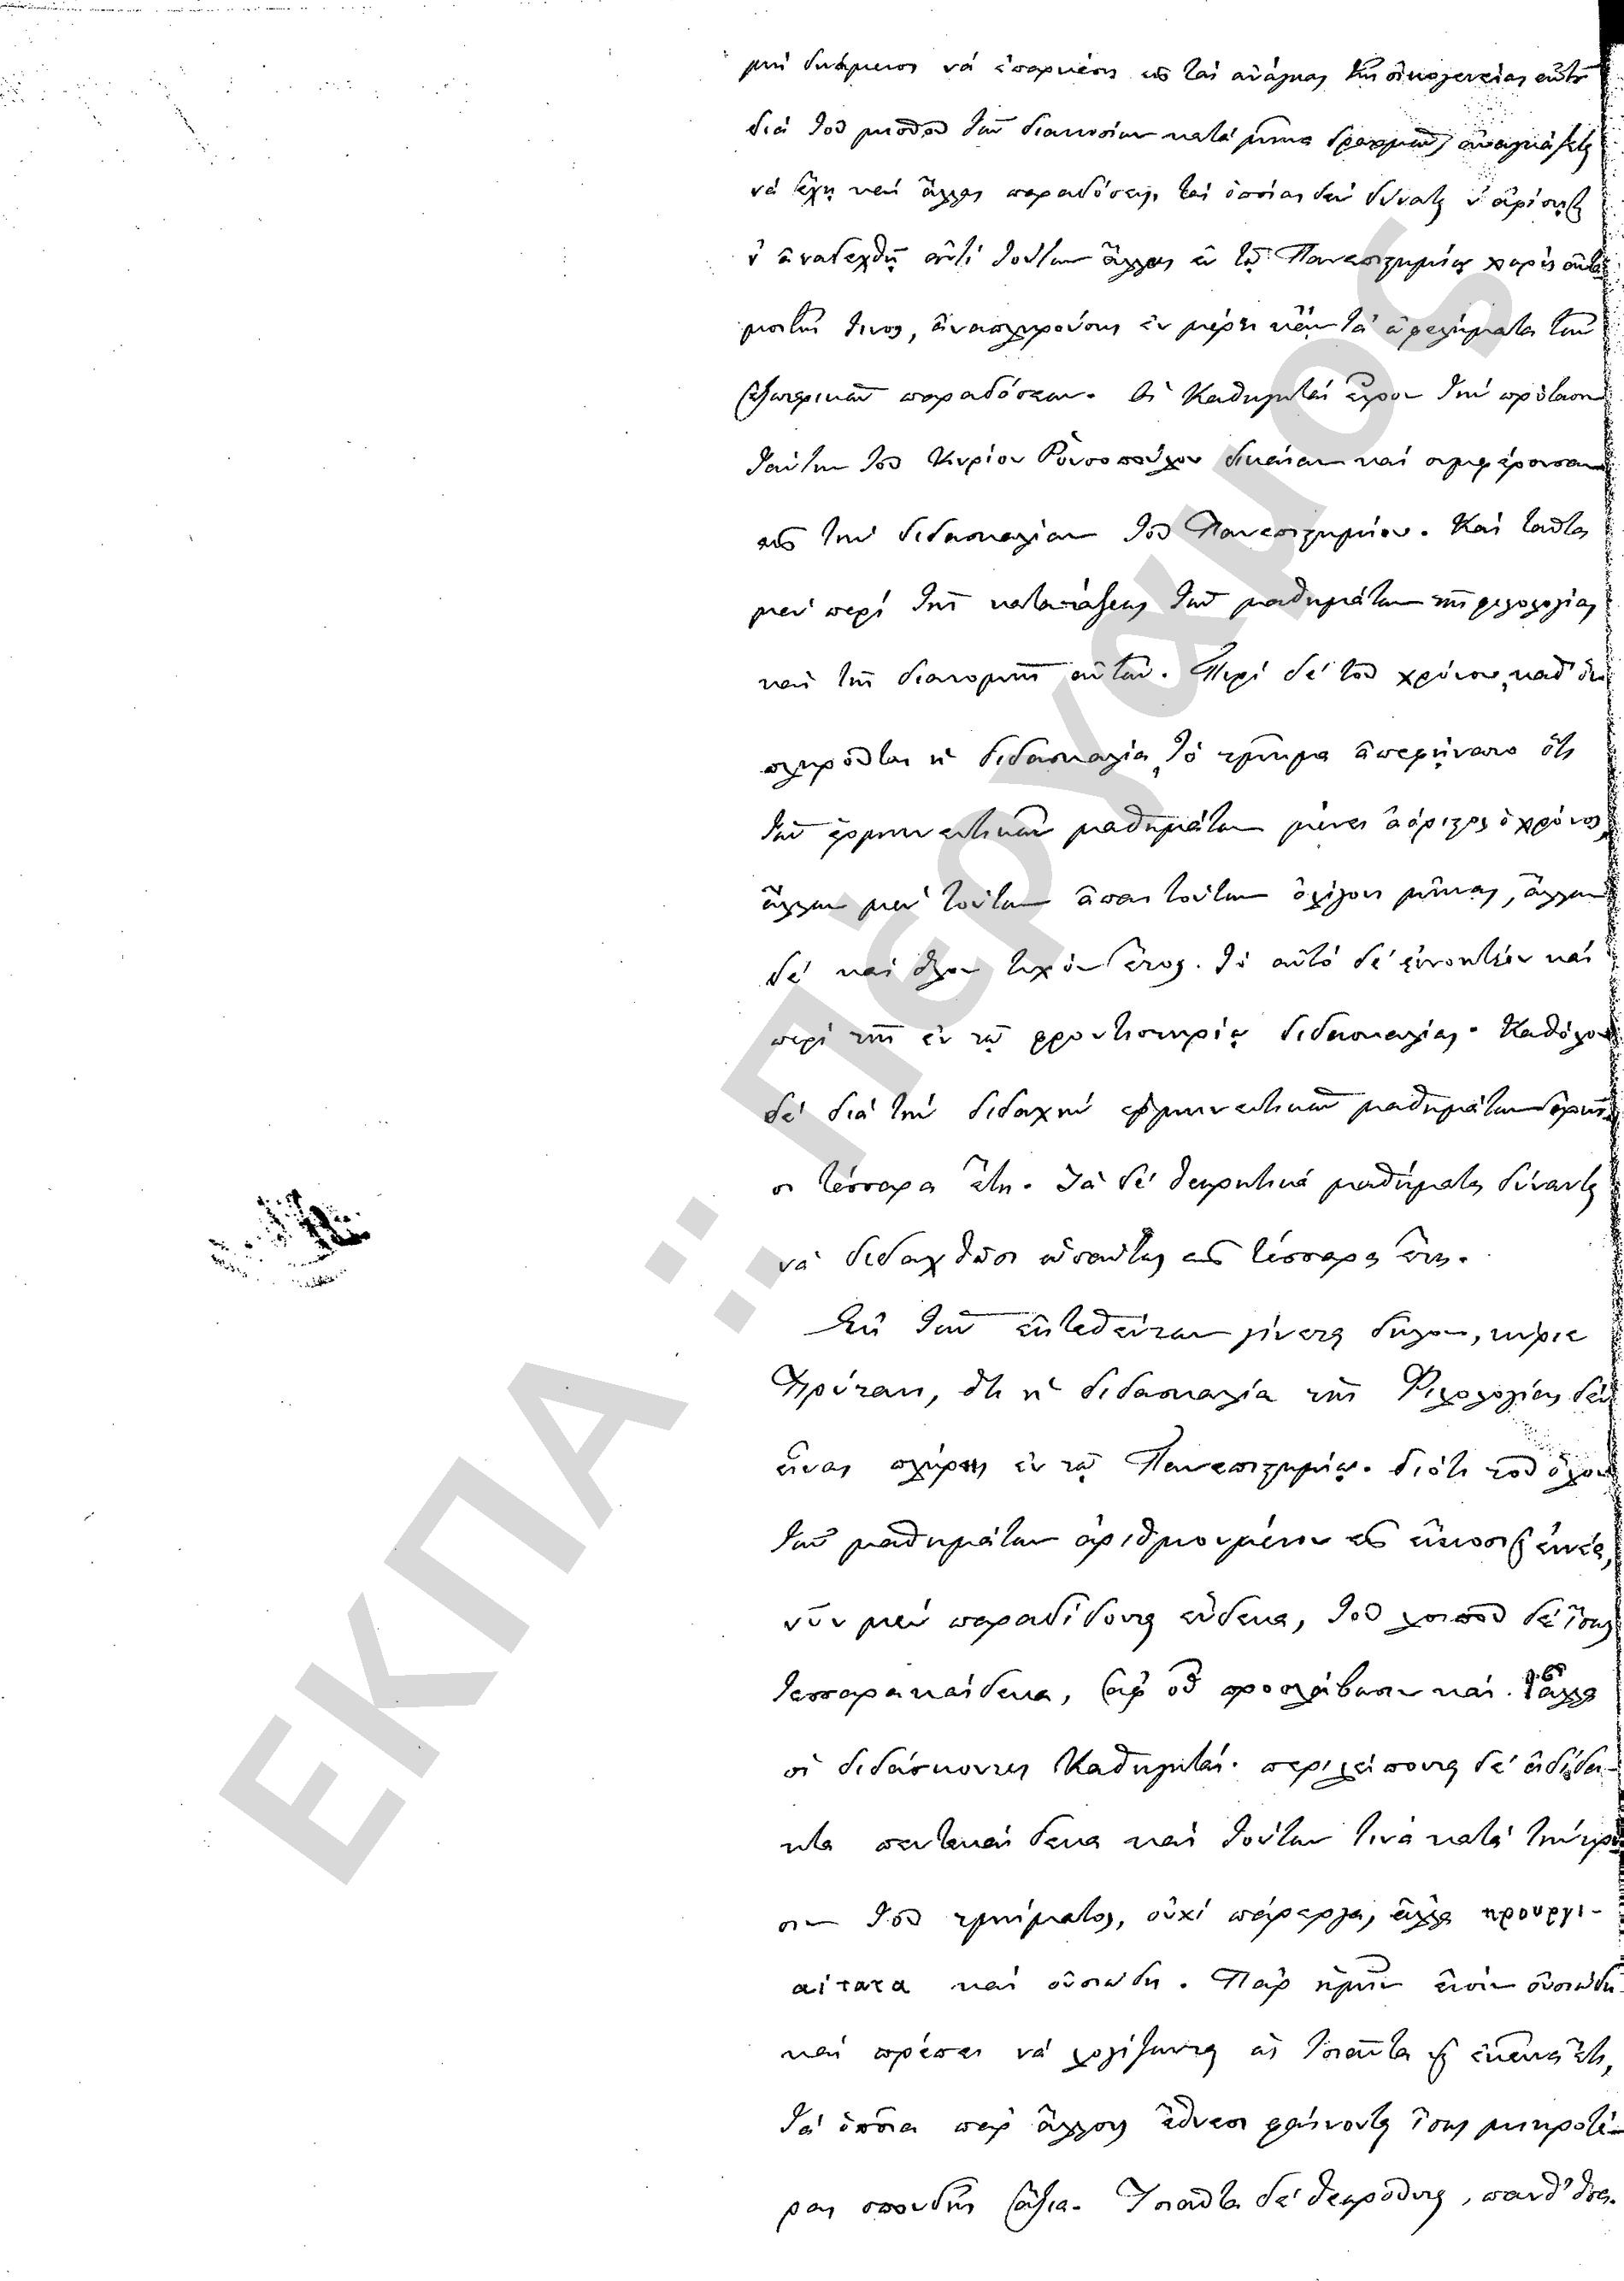 μὴ δυνάμενος νὰ ἐπαρκέσῃ εἰς τὰς ἀνάγκας τῆς οἰκογενείας αὐτοῦ
διὰ τοῦ μισθοῦ τῶν διακοσίων κατὰ μῆνα δραχμῶν, ἀναγκάζεται
νὰ ἔχῃ καὶ ἄλλας παραδόσεις, τὰς ὁποίας δὲν δύναται ν' ἀφήσῃ καὶ
ν' ἀναδεχθῇ ἀντὶ τούτων ἄλλας ἐν τῷ Πανεπιστημίῳ χωρὶς ἀντι
μισθίας τινος, ἀναπληρούσης ἐν μέρει κἂν τὰ ὠφελήματα τῶν
ἐξωτερικῶν παραδόσεων. Οἱ Καθηγηταὶ εὗρον τὴν πρότασιν
ταύτην τοῦ Κυρίου Ῥουσοπούλου δικαίαν καὶ συμφέρουσαν
εἰς τὴν διδασκαλίαν τοῦ Πανεπιστημίου. Καὶ ταῦτα
μὲν περὶ τῆς κατατάξεως τῶν μαθημάτων τῆς φιλολογίας
καὶ τῆς διανομῆς αὐτῶν. Περὶ δὲ τοῦ χρόνου, καθ' ὃν
πληροῦται ἡ διδασκαλία, τὸ τμῆμα ἀπεφήνατο ὅτι
τῶν ἑρμηνευτικῶν μαθημάτων μένει ἀόριστος ὁ χρόνος,
ἄλλων μὲν τούτων ἀπαιτούντων ὀλίγους μῆνας, ἄλλων
δὲ καὶ ὅλον τυχὸν ἔτος. Τὸ αὐτὸ δὲ ἐννοητέον καὶ
περὶ τῆς ἐν τῷ φροντιστηρίῳ διδασκαλίας. Καθόλου
δὲ διὰ τὴν διδαχὴν ἑρμηνευτικῶν μαθημάτων ἀρκοῦ
σι τέσσαρα ἔτη. Τὰ δὲ θεωρητικὰ μαθήματα δύνανται
νὰ διδαχθῶσι ὡσαύτως εἰς τέσσαρα ἔτη.
Ἐκ τῶν ἐκτεθέντων γίνεται δῆλον, κύριε
Πρύτανι, ὅτι ἡ διδασκαλία τῆς Φιλολογίας δὲν
εἶναι πλήρης ἐν τῷ Πανεπιστημίῳ. διότι τοῦ ὅλου
τῶν μαθημάτων ἀριθμουμένου εἰς εἴκοσι καὶ ἐννέα,
νῦν μὲν παραδίδονται ἕνδεκα, τοῦ λοιποῦ δὲ ἴσως
τεσσαρακαίδεκα, ἀφ' οὗ προσλάβωσιν καὶ ἄλλα
οἱ διδάσκοντες Καθηγηταί. περιλείπονται δὲ ἀδίδα-
κτα πεντεκαίδεκα καὶ τούτων τινὰ κατὰ τὴν κρί
σιν τοῦ τμήματος, οὐχὶ πάρεργα, ἀλλὰ προυργι-
αίτατα καὶ οὐσιώδη. Παρ' ἡμῖν εἰσὶν οὐσιώδη
καὶ πρέπει νὰ λογίζωνται ὡς τοιαῦτα καὶ ἐκεῖνα ἔτι,
τὰ ὁποῖα παρ' ἄλλοις ἔθνεσι φαίνονται ἴσως μικροτέ-
ρας σπουδῆς ἄξια. Τοιαῦτα δὲ θεωροῦνται, πάνθ' ὅσα